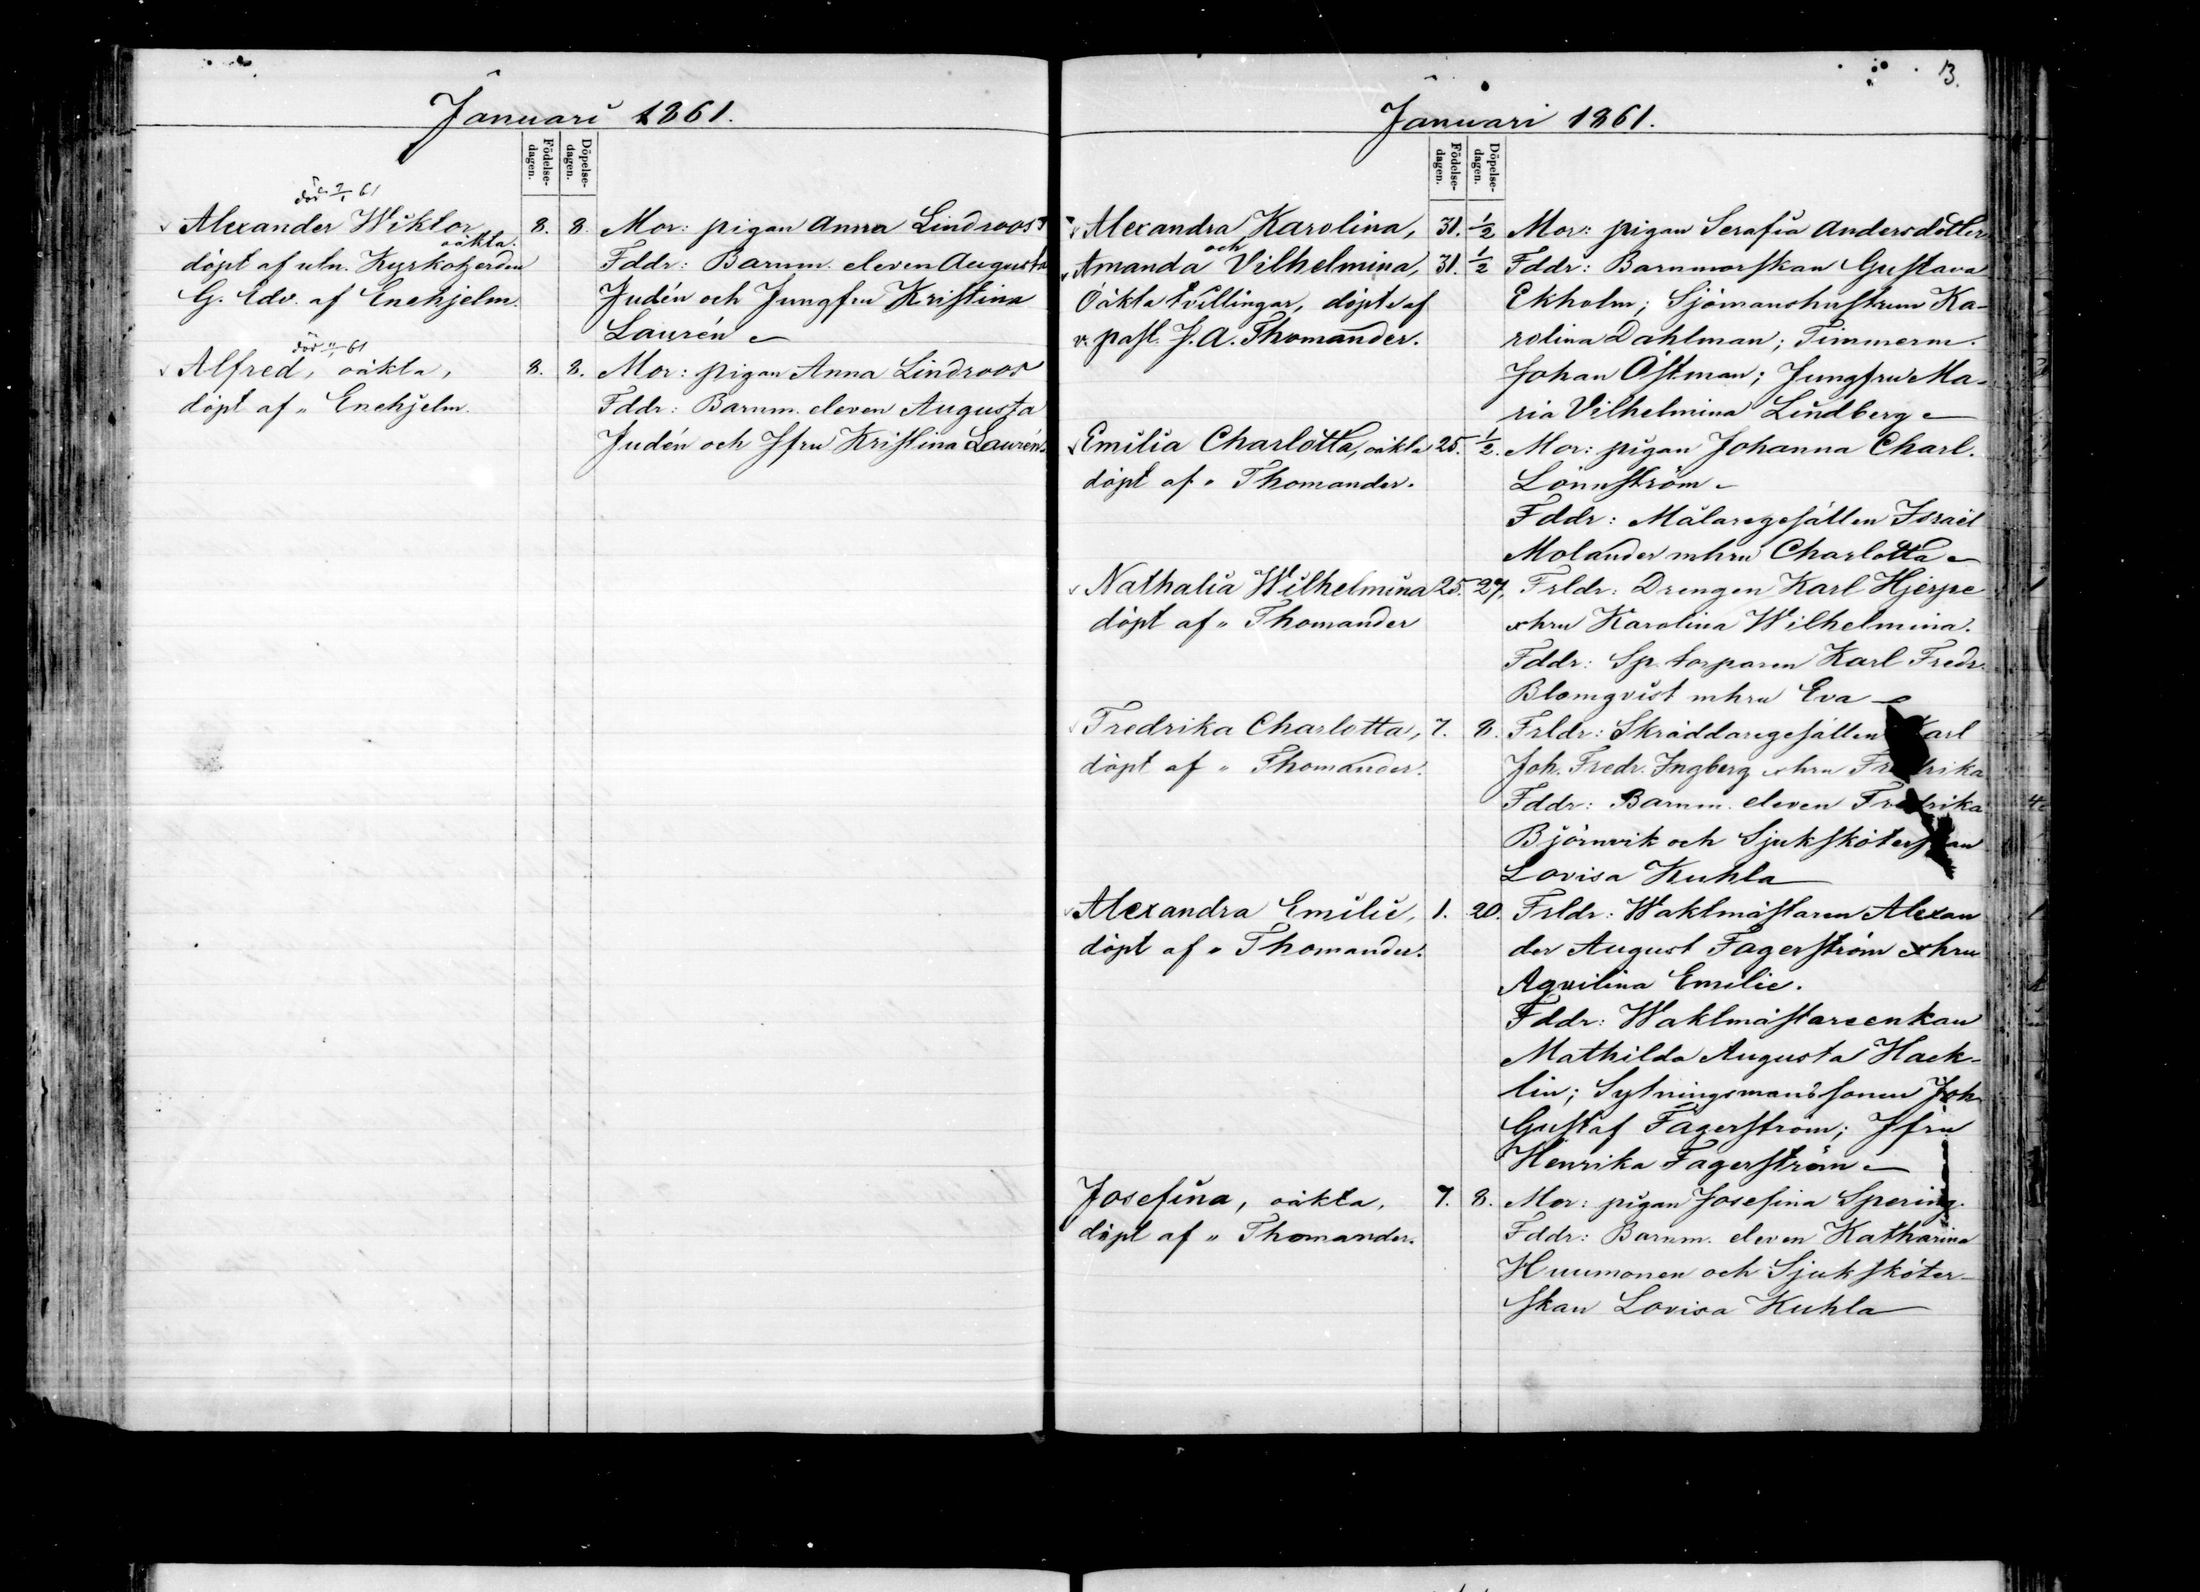 Januari 1861.
Födelse-dagen.
Döpelse-dagen.
död 9/1 61
Alexander Wiktor oäkta. 8. 8. Mor: pigan Anna Lindroos
döpt af utn. Kyrkoherden Fddr: Barnm. eleven Augusta
G. Edv. af Enehjelm. Judén och Jungfru Kristina
Laurén
död 11/1 61
Alfred, oäkta, 8. 8. Mor: pigan Anna Lindroos
döpt af " Enehjelm. Fddr: Barnm. eleven Augusta
Judén och Jfru Kristina Laurén.
13.
Januari 1861.
Födelse-dagen.
Döpelse-dagen.
Alexandra Karolina, 31. 1/2 Mor: pigan Serafia Andersdotter
och
Amanda Vilhelmina, 31. 1/2 Fddr: Barnmorskan Gustava
Oäkta tvillingar, döpt af Ekholm; Sjömanshustrun Ka-
v. past. J. A. Thomander. rolina Dahlman; Timmerm.
Johan Östman; Jungfru Ma-
ria Vilhelmina Lindberg
Emilia Charlotta, oäkta 25. 1/2. Mor: pigan Johanna Charl.
döpt af " Thomander. Lönnström
Fddr: Målaregesällen Israël
Molander mhru Charlotta
Nathalia Wilhelmina 25. 27. Frldr: Drengen Karl Hjerpe
döpt af " Thomander xhru Karolina Wilhelmina.
Fddr: Sp. torparen Karl Fredr.
Blomqvist mhru Eva
Fredrika Charlotta, 7. 8. Frldr: Skräddaregesällen Karl
döpt af " Thomander. Joh. Fredr. Ingberg xhru Fredrika
Fddr: Barnm. eleven Fredrika
Björnvik och Sjuksköterskan
Lovisa Kuhla
Alexandra Emilie, 1. 20. Frldr: Waktmästaren Alexan
döpt af " Thomander. der August Fagerström xhru
Aqvilina Emilie.
Fddr: Waktmästareenkan
Mathilda Augusta Hack-
lin; Sytningsmanssonen Joh.
Gustaf Fagerström; Jfru
Henrika Fagerström
Josefina, oäkta, 7. 8. Mor: pigan Josefina Spering.
döpt af " Thomander. Fddr: Barnm. eleven Katharina
Huumonen och Sjuksköter-
skan Lovisa Kuhla